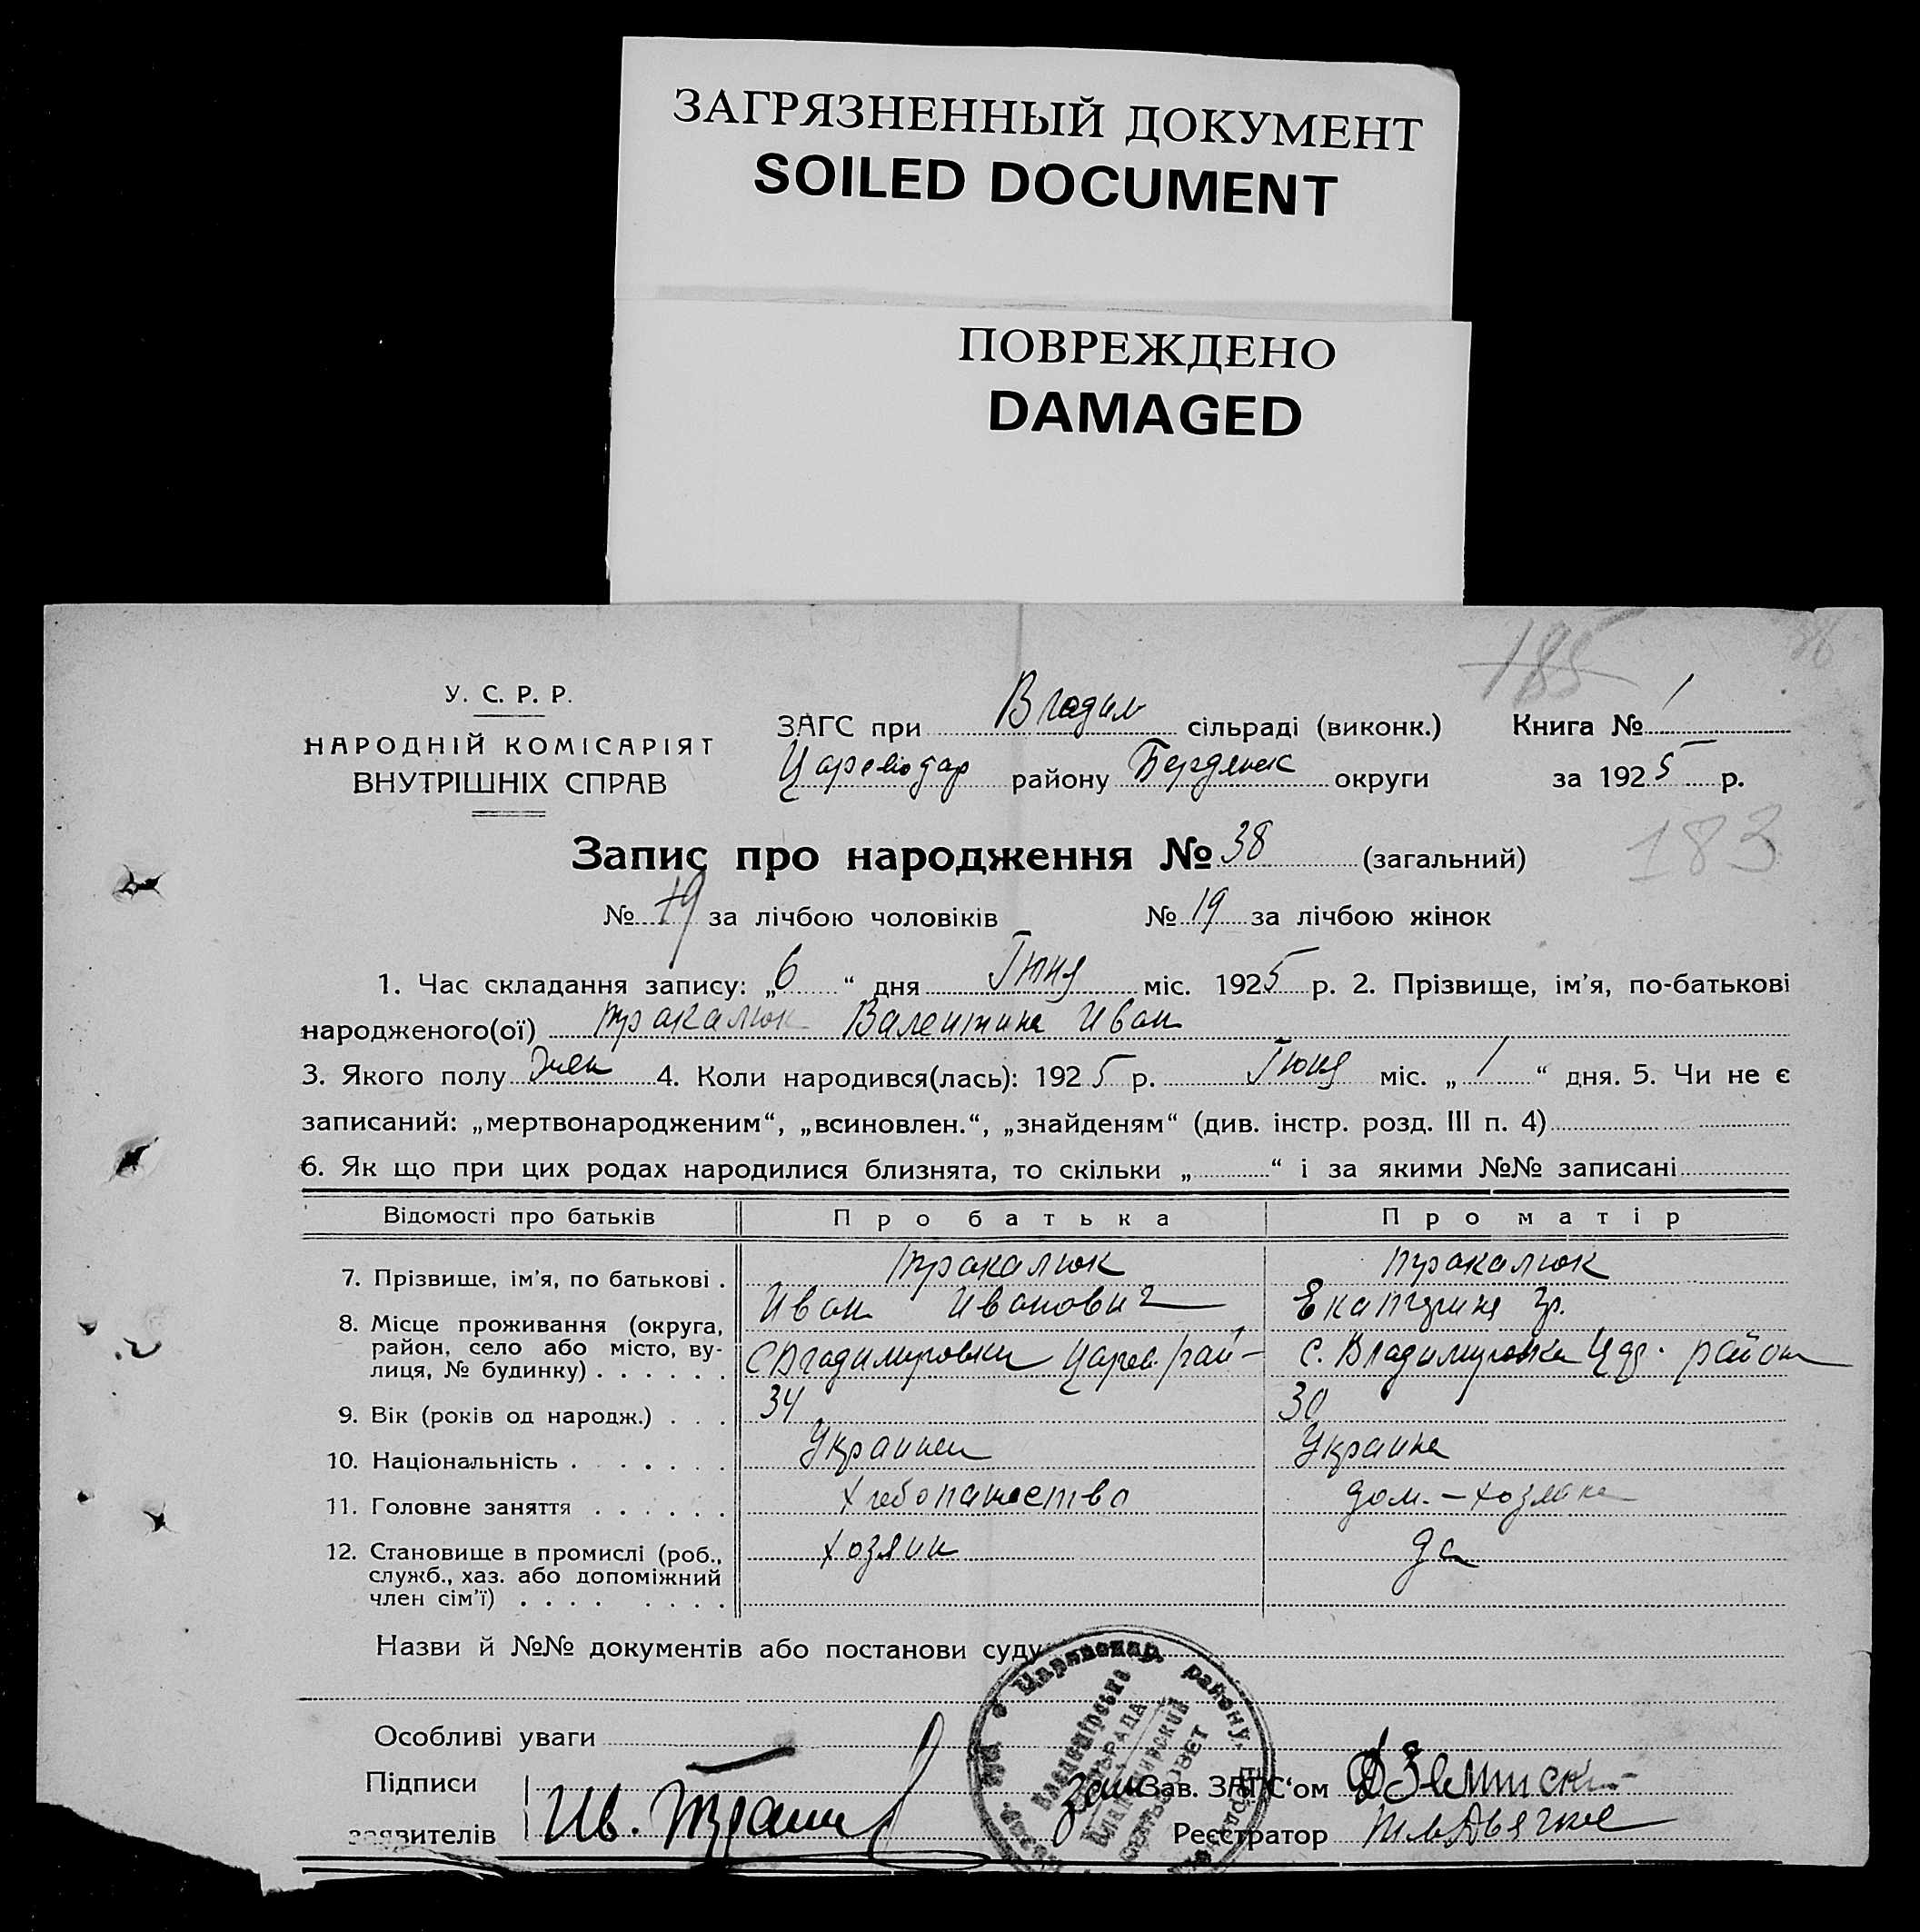 ЗАГРЯЗНЕННЫЙ ДОКУМЕНТ
SOILED DOCUMENT
ПОВРЕЖДЕНО
DAMAGED
185
38
У. С. Р. Р.
НАРОДНІЙ КОМІСАРІЯТ
ВНУТРІШНІХ СПРАВ
ЗАГС при Владим сільраді (виконк.) Книга № 1
Цареводар району Бердянск округи за 1925 р.
183
Запис про народження № 38 (загальний)
№ 19 за лічбою чоловіків № 19 за лічбою жінок
1. Час складання запису: „6“ дня Іюня міс. 1925 р. 2. Прізвище, ім'я, по-батькові
народженого(ої) Тракалюк Валентина Иван
3. Якого полу Жен 4. Коли народився(лась): 1925 р. Іюня міс. „1“ дня. 5. Чи не є
записаний: „мертвонародженим“, „всиновлен.“, „знайденям“ (див. інстр. розд. III п. 4)
6. Як що при цих родах народилися близнята, то скільки „ “ і за якими №№ записані
Відомості про батьків Про батька Про матір
7. Прізвище, ім'я, по батькові . Тракалюк Тракалюк
Иван Иванович Екатерина Гр.
8. Місце проживання (округа, район, село або місто, вулиця, № будинку) . . . . . . С Владимировки Царев. рай- с. Владимировка Цдр. район
9. Вік (років од народж.) . . . 34 30
10. Національність . . . . . . Украинец Украинка
11. Головне заняття . . . . . . Хлебопашество дом.-хозяйка
12. Становище в промислі (роб., служб., хаз. або допоміжний член сім'ї) . . . . . . . . хозяин да
Назви й №№ документів або постанови суду
Особливі уваги
Цареводар. району,
Владимірська
СІЛЬРАДА
Владимирский
СЕЛЬСОВЕТ
Підписи
заявителів Ив.
Зам Зав. ЗАГС'ом
Реєстратор